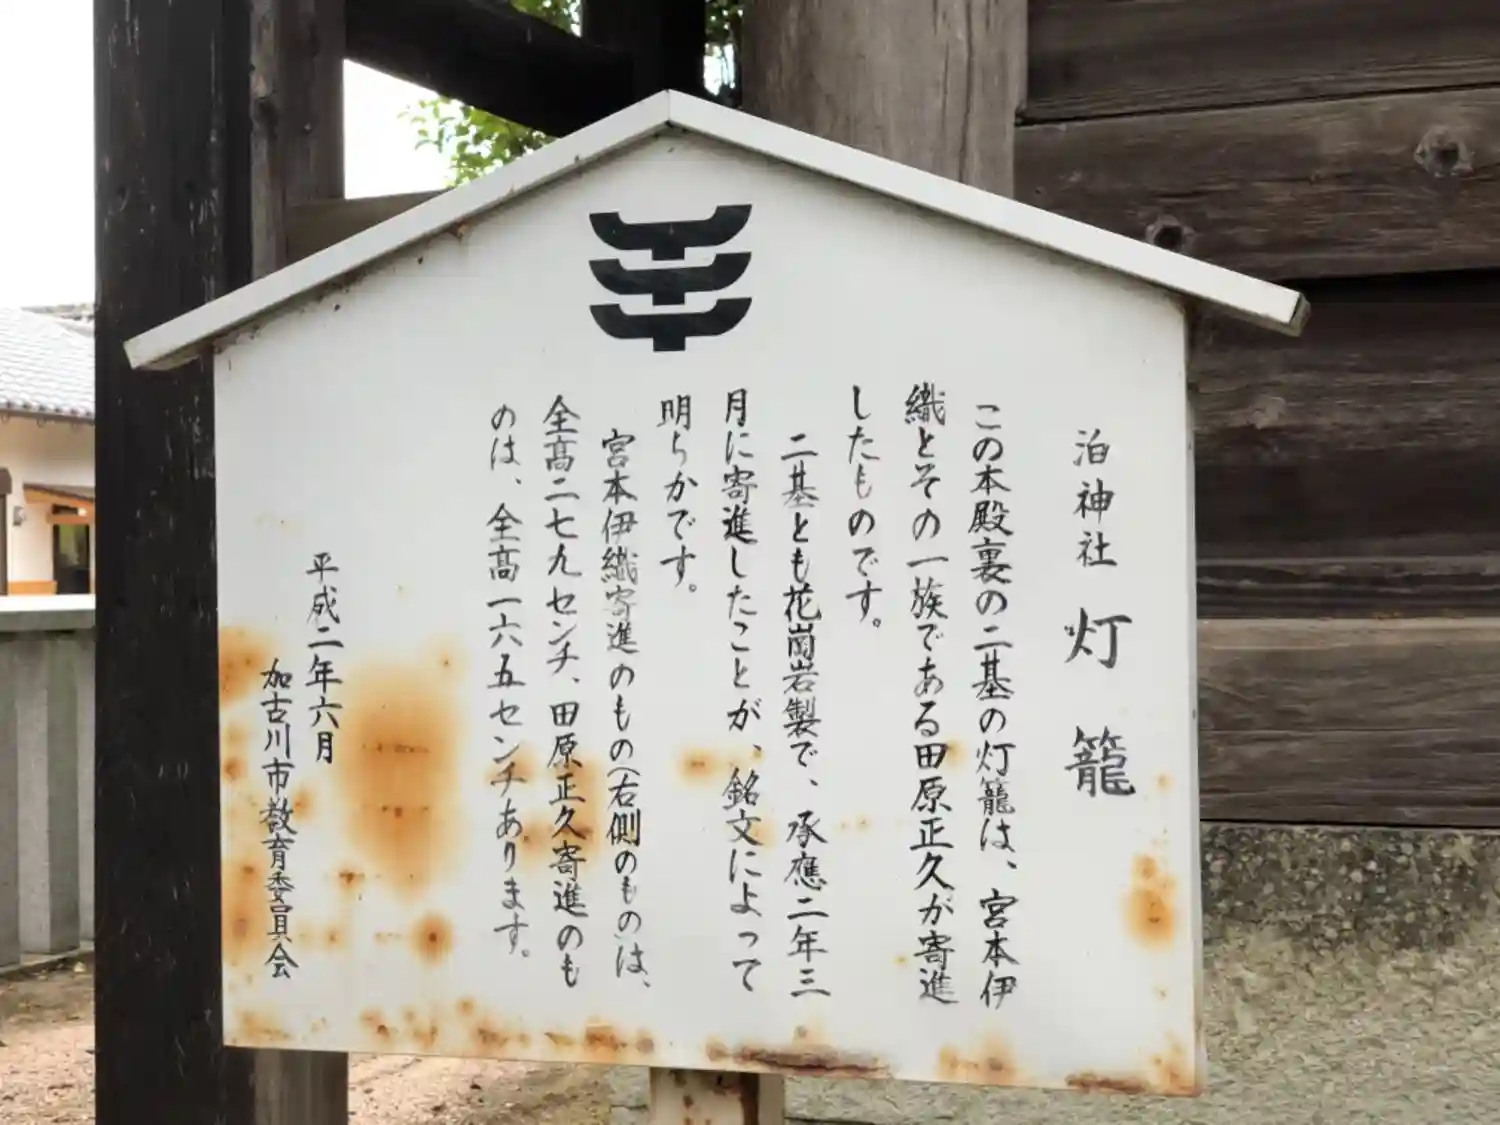 泊神社 灯籠
この本殿裏の二基の灯籠は、宮本伊
織とその一族である田原正久が寄進
したものです。
二基とも花崗岩製で、承應二年三
月に寄進したことが、銘文によって
明らかです。
宮本伊織寄進のもの(右側のもの)は、
全高二七九センチ、田原正久寄進のも
のは、全高一六五センチあります。
平成二年六月
加古川市教育委員会